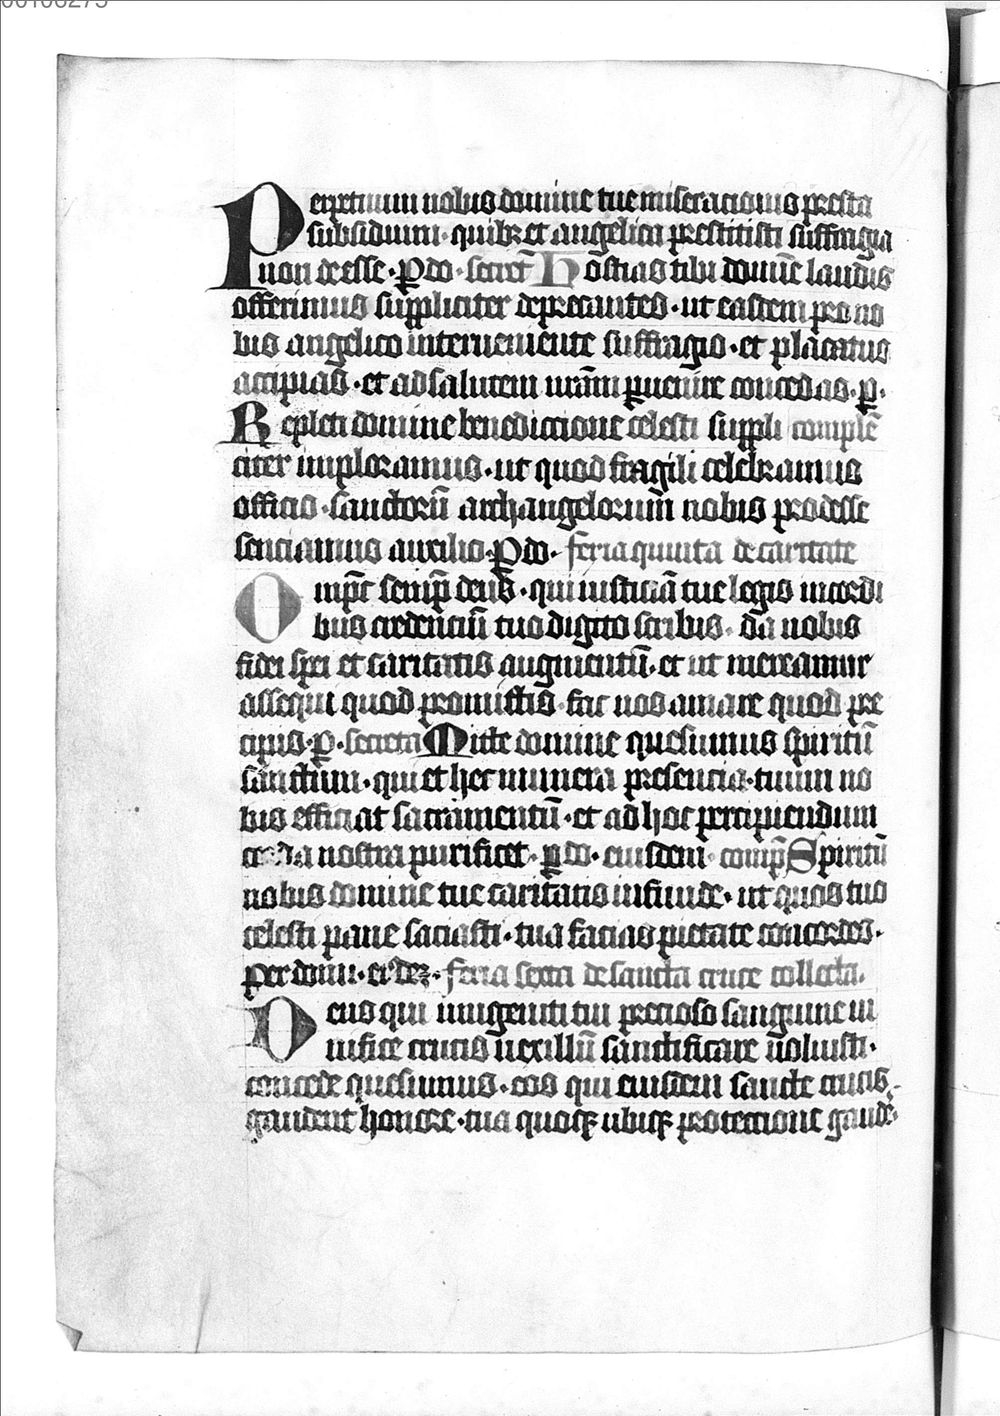 Perpetuum nobis domine tue miseracionis presta
subsidium · quibz et angelica prestitisti suffragia
non deesse · P do · secret̄ Hostias tibi domīe laudis
offerimus suppliciter deprecantes · ut easdem pro no
bis angelico interueniente suffragio · et placatus
accipias · et ad salutem nrām puenire concedas · p̱ ·
Repleti domine benediccione celesti suppli complē
citer imploramus · ut quod fragili celebramus
officio · sanctorū archangelorum nobis prodesse
senciamus auxilio · P do · feria quinta de caritate
Omp̄c semp̄ deus · qui iusticiā tue legis in cordi
bus credenciū tuo digito scribis · da nobis
fidei spei et caritatis augmentū · et ut mereamur
assequi quod promittis · fac nos amare quod pre
cipis · p̱ · secreta Mitte domine quesumus spiritū
sanctum · qui et hec munera presencia · tuum no
bis efficiat sacramentū · et ad hoc percipiendum
corda nostra purificet · p̱ do · eiusdem · comp̄ Spiritū
nobis domine tue caritatis infunde · ut quos tuo
celesti pane saciasti · tua facias pietate concordes ·
Per dnm · eiusdez · feria sexta de sancta cruce collecta ·
Deus qui unigeniti tui precioso sanguine ui
uifice crucis uexillū sanctificare uoluisti ·
concede quesumus · eos qui eiusdem sancte crucis
gaudent honore · tua quoqz ubiqz protectione gaude